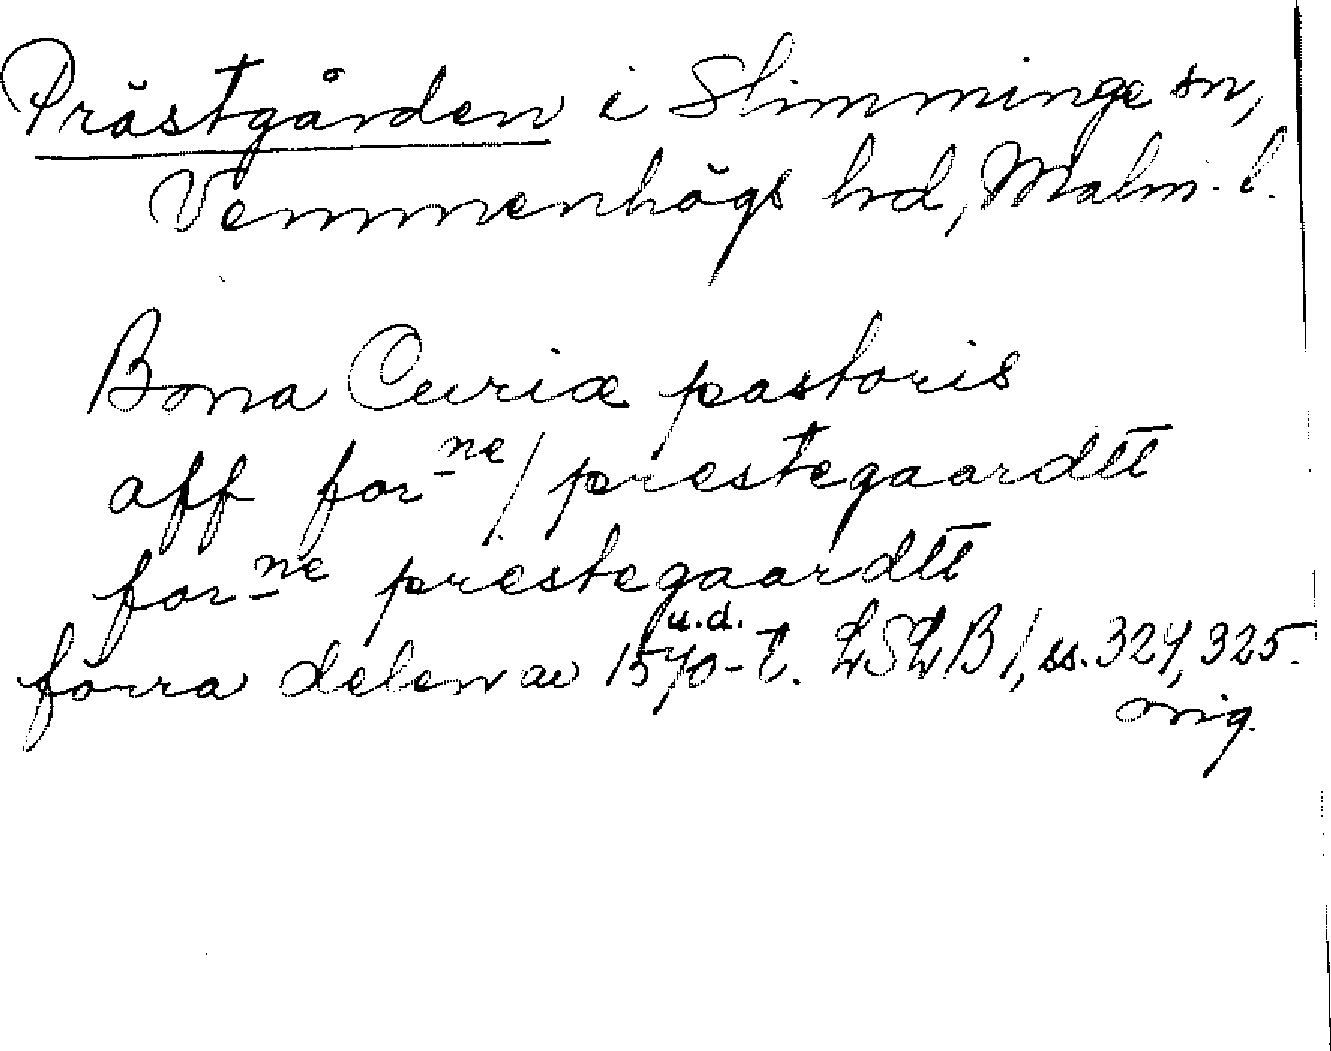 Prästgården i Slimminge sn,
Vemmenhögs hd, Malm. l.
Bona Curiæ pastoris
aff for ne / prestegaardtt
for ne prestegaardtt
u.d.
förra delen av 1570-t. LSLB 1, ss. 324, 325.
orig.